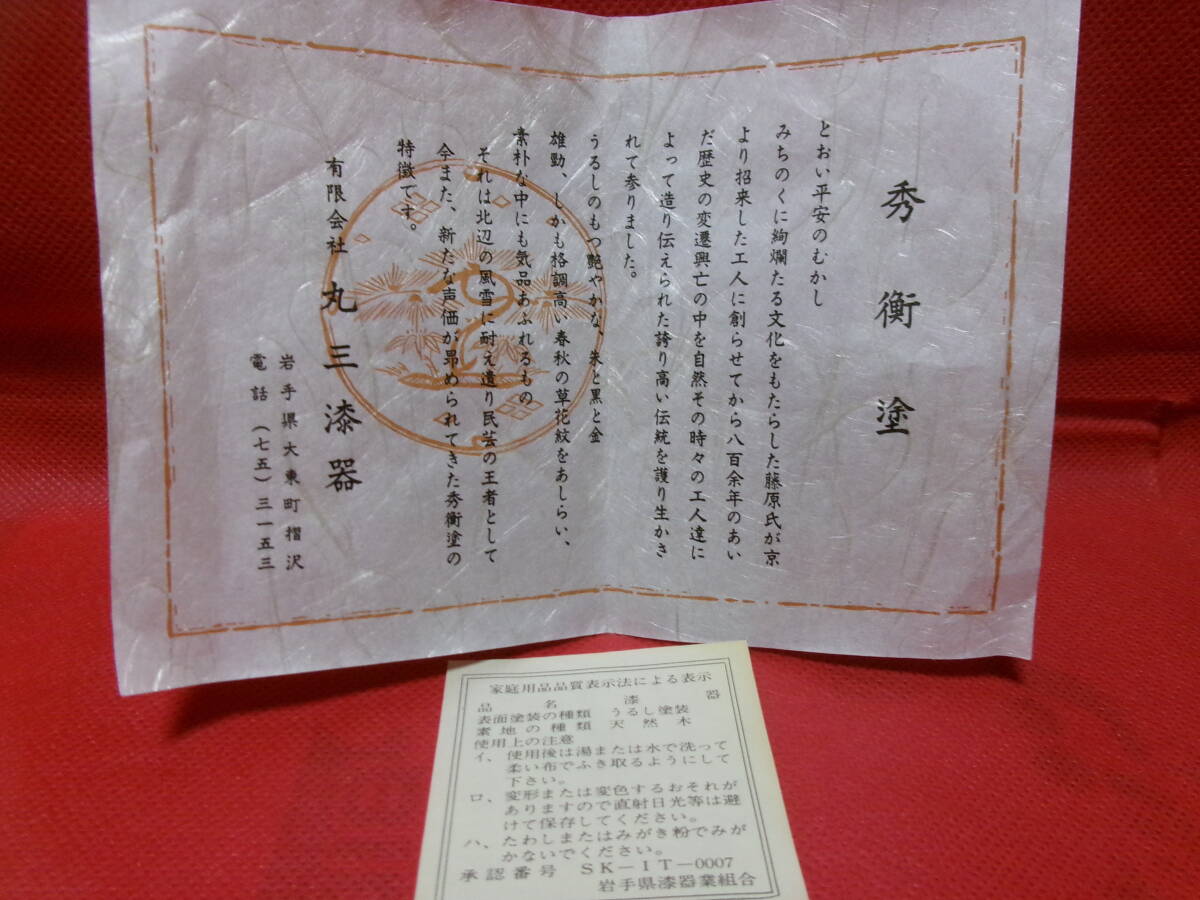 秀衡塗
とおい平安のむかし
みちのくに絢爛たる文化をもたらした藤原氏が京
より招来した工人に創らせてから八百余年のあい
だ歴史の変遷興亡の中を自然その時々の工人達に
よって造り伝えられた誇り高い伝統を護り生かさ
れて参りました。
うるしのもつ艶やかな、朱と黒と金
雄勁、しかも格調高い春秋の草花紋をあしらい、
素朴な中にも気品あふれるもの
それは北辺の風雪に耐え遺り民芸の王者として
今また、新たな声価が昴められてきた秀衡塗の
特徴です。
有限会社 丸三漆器
岩手県大東町摺沢
電話(七五)三一五三
家庭用品品質表示法による表示
品名 漆器
表面塗装の種類 うるし塗装
素地の種類 天然木
使用上の注意
イ、使用後は湯または水で洗って
柔い布でふき取るようにして
下さい。
ロ、変形または変色するおそれが
ありますので直射日光等は避
けて保存してください。
ハ、たわしまたはみがき粉でみが
かないでください。
承認番号 SK－IT－0007
岩手県漆器業組合